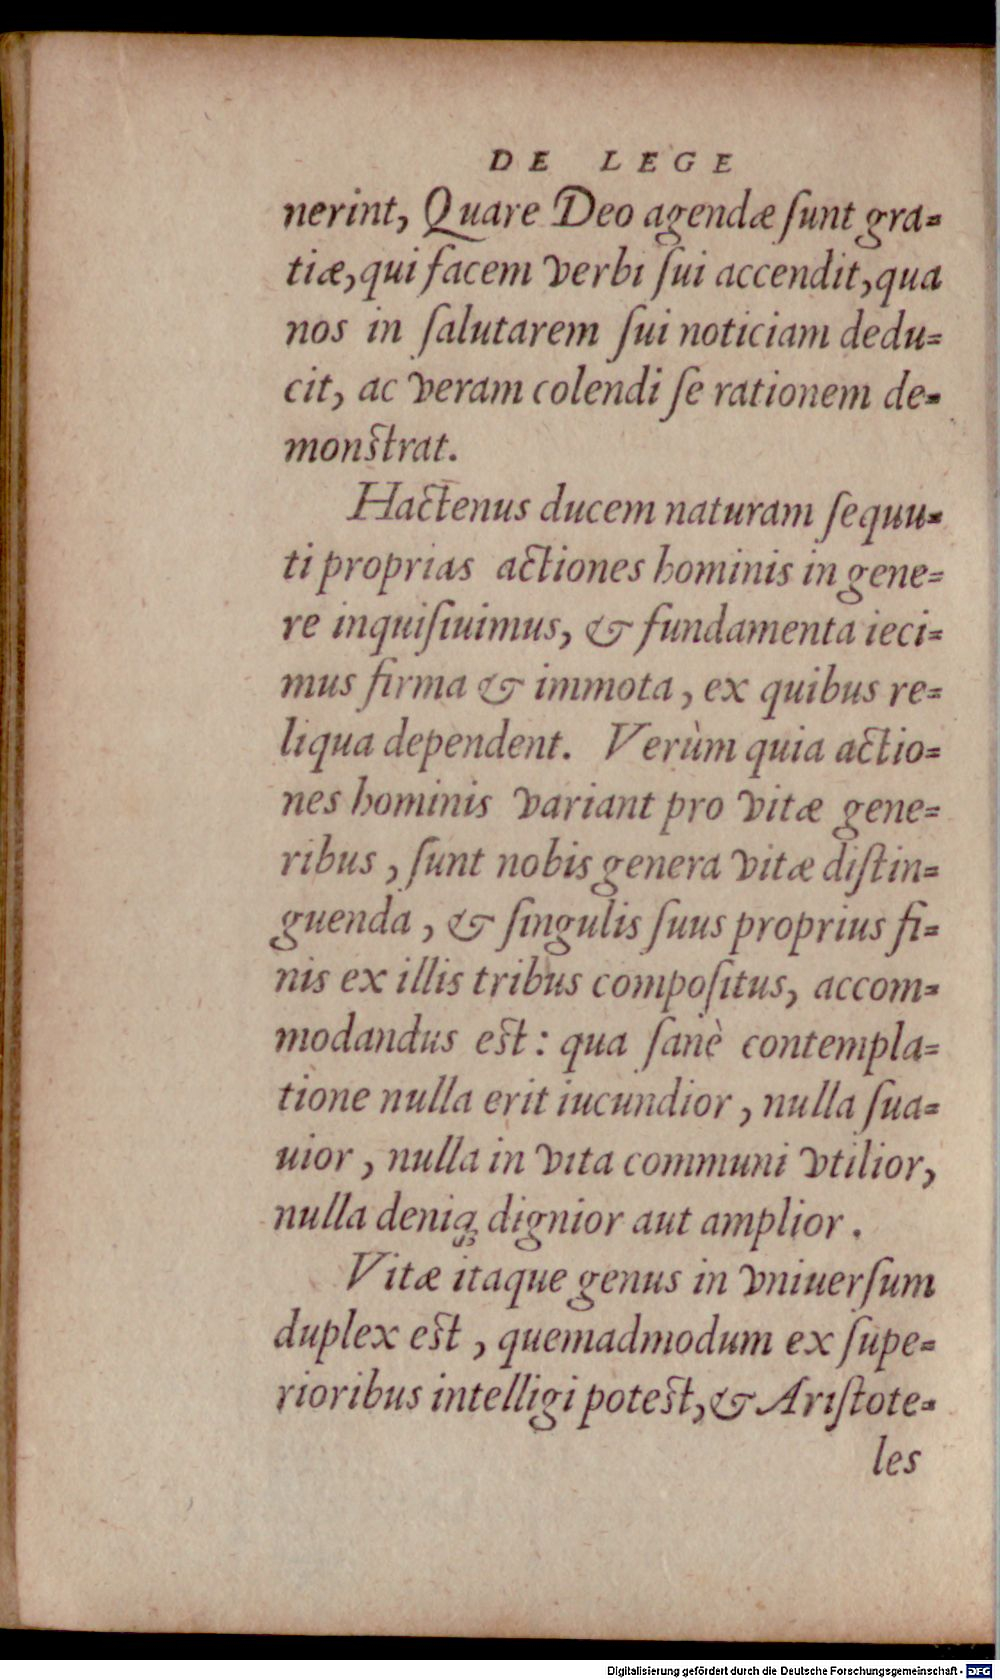 DE LEGE
nerint, Quare Deo agendæ ſunt gra=
tiæ, qui facem verbi ſui accendit, qua
nos in ſalutarem ſui noticiam dedu=
cit, ac veram colendi ſe rationem de=
monſtrat.
Hactenus ducem naturam ſequu=
ti proprias actiones hominis in gene=
re inquiſiuimus, & fundamenta ieci=
mus firma & immota, ex quibus re=
liqua dependent. Verùm quia actio=
nes hominis variant pro vitæ gene=
ribus, ſunt nobis genera vitæ diſtin=
guenda, & ſingulis ſuus proprius fi=
nis ex illis tribus compoſitus, accom=
modandus eſt: qua ſanè contempla=
tione nulla erit iucundior, nulla ſua=
uior, nulla in vita communi vtilior,
nulla deniq; dignior aut amplior.
Vitæ itaque genus in vniuerſum
duplex eſt, quemadmodum ex ſupe=
rioribus intelligi poteſt, & Ariſtote=
les
Digitalisierung gefördert durch die Deutsche Forschungsgemeinschaft - DFG